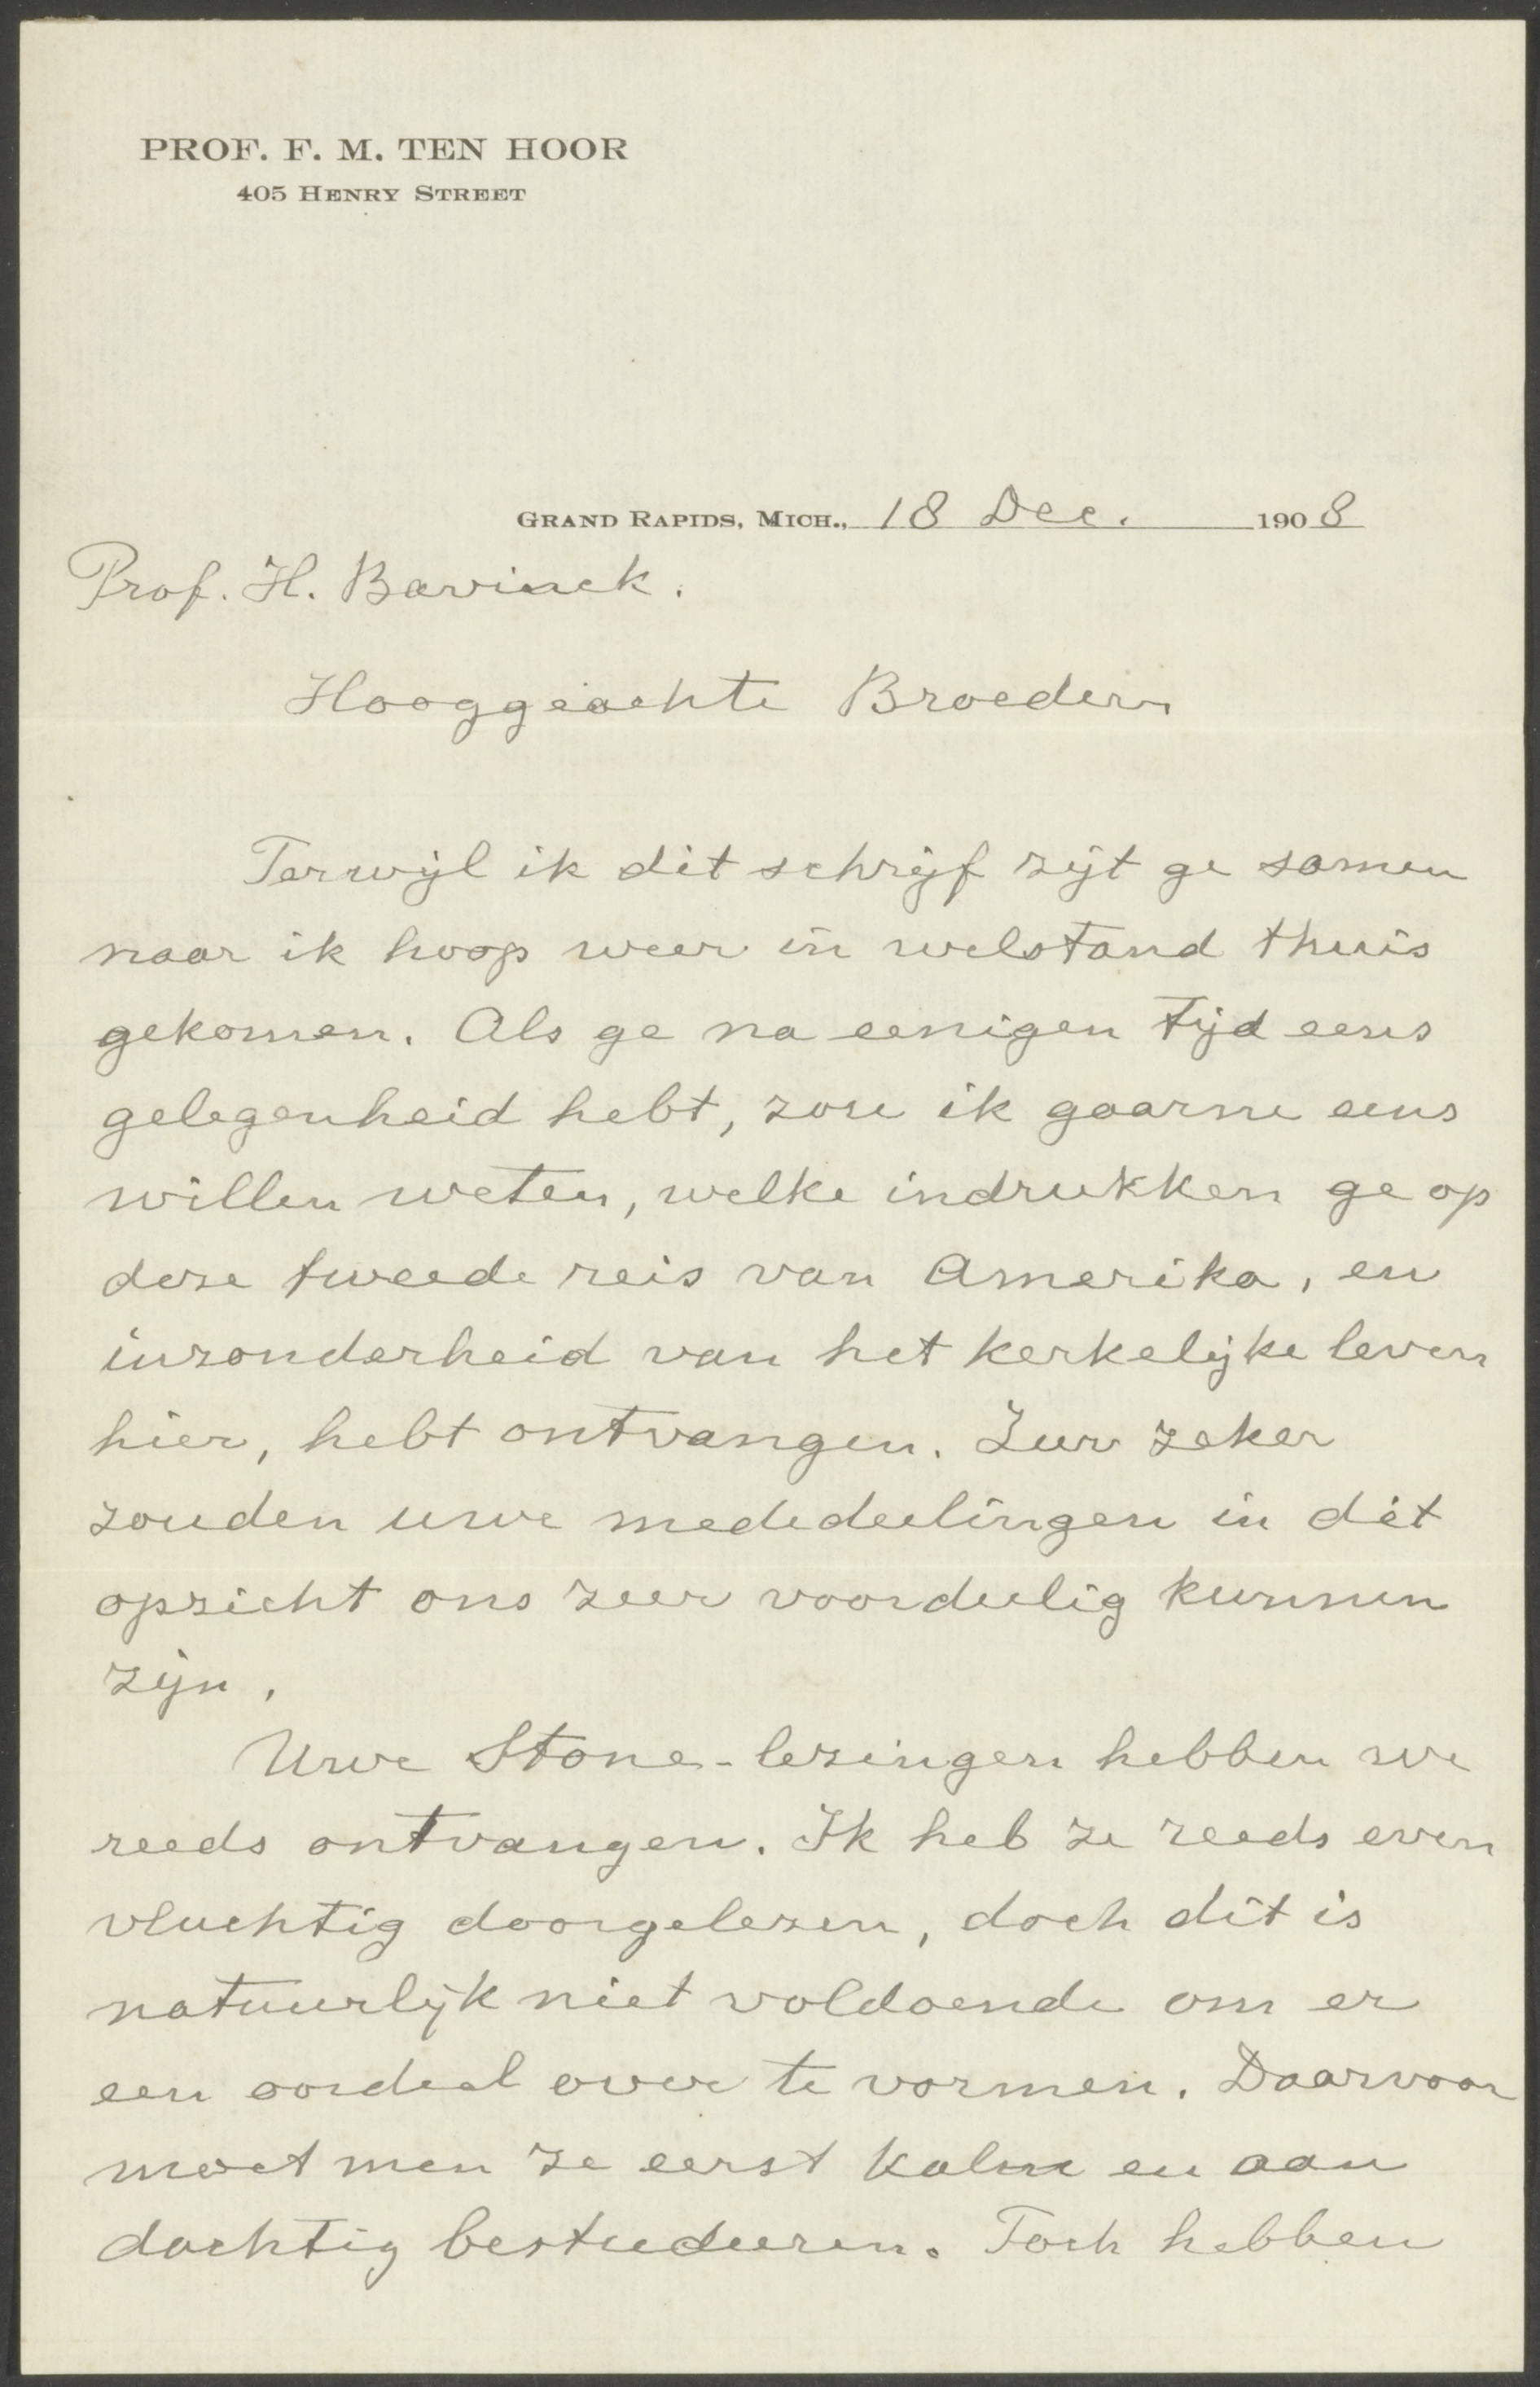 PROF. F. M. TEN HOOR
405 HENRY STREET
GRAND RAPIDS, MICH., 18 Dec. 1908
Prof. H. Bavinck.
Hooggeachte Broeder
Terwijl ik dit schrijf zijt ge samen
naar ik hoop weer in welstand thuis
gekomen. Als ge na eenigen tijd eens
gelegenheid hebt, zou ik gaarne eens
willen weten, welke indrukken ge op
deze tweede reis van Amerika, en
inzonderheid van het kerkelijke leven
hier, hebt ontvangen. Zeer zeker
zouden uwe mededeelingen in dit
opzicht ons zeer voordeelig kunnen
zijn.
Uwe Stone-lezingen hebben we
reeds ontvangen. Ik heb ze reeds even
vluchtig doorgelezen, doch dit is
natuurlijk niet voldoende om er
een oordeel over te vormen. Daarvoor
moet men ze eerst kalm en aan
dachtig bestudeeren. Toch hebben